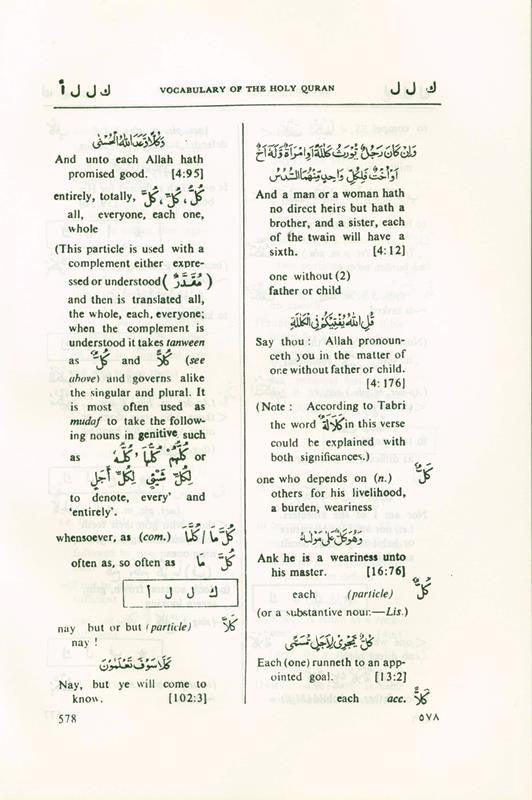 ك ل ل
VOCABULARY OF THE HOLY QURAN
ك ل ل أ
وَاِنْ كَانَ رَجُلٌ يُّوْرَثُ كَلٰلَةً اَوِ امْرَاَةٌ وَّلَهٗٓ اَخٌ
اَوْ اُخْتٌ فَلِكُلِّ وَاحِدٍ مِّنْهُمَا السُّدُسُ
And a man or a woman hath
no direct heirs but hath a
brother, and a sister, each
of the twain will have a
sixth. [4:12]
one without (2)
father or child
قُلِ اللّٰهُ يُفْتِيْكُمْ فِى الْكَلٰلَةِ
Say thou : Allah pronoun-
ceth you in the matter of
one without father or child.
[4:176]
(Note : According to Tabri
the word كَلَالَةً in this verse
could be explained with
both significances.)
one who depends on (n.) كَلٌّ
others for his livelihood,
a burden, weariness
وَهُوَ كَلٌّ عَلٰى مَوْلٰىهُ
Ank he is a weariness unto
his master. [16:76]
each (particle) كُلٌّ
(or a substantive noun.—Lis.)
كُلٌّ يَّجْرِىْ لِاَجَلٍ مُّسَمًّى
Each (one) runneth to an app-
ointed goal. [13:2]
each acc. كُلاًّ
وَكُلًّا وَّعَدَ اللّٰهُ الْحُسْنٰى
And unto each Allah hath
promised good. [4:95]
entirely, totally, كُلُّ، كُلِّ، كُلَّ
all, everyone, each one,
whole
(This particle is used with a
complement either expre-
ssed or understood (مُقَدَّرٌ)
and then is translated all,
the whole, each, everyone;
when the complement is
understood it takes tanween
as كُلٌّ and كُلاًّ (see
above) and governs alike
the singular and plural. It
is most often used as
mudaf to take the follow-
ing nouns in genitive such
as كُلُّهُمْ كُلُّهَا، كُلُّهُ or
لِكُلِّ شَيْئٍ لِكُلِّ أَجَلٍ
to denote, every' and
'entirely'.
whensoever, as (com.) كُلَّ مَا / كُلَّمَا
often as, so often as كُلَّ مَا
ك ل ل أ
nay but or but (particle) كَلاَّ
nay !
كَلَّا سَوْفَ تَعْلَمُوْنَ
Nay, but ye will come to
know. [102:3]
578
٥٧٨